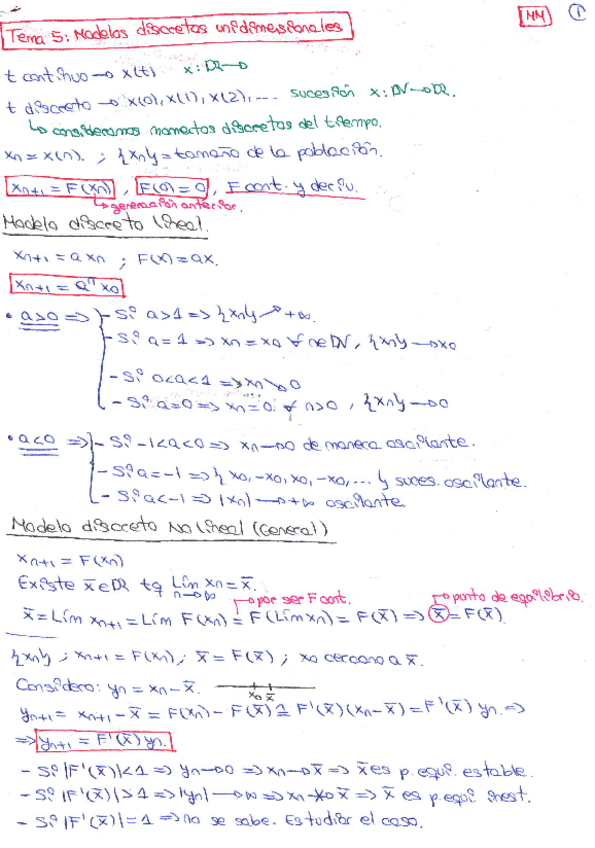 Tema 5: Modelos discretos unidimensionales
MM 1
t continuo → x(t) x: ℝ→
t discreto → x(0), x(1), x(2), ... sucesión x: ℕ→ℝ.
↳ consideramos momentos discretos del tiempo.
xn = x(n). ; {xn} = tamaño de la población.
xn+1 = F(xn) , F(0) = 0 , F cont. y deriv.
↳ generación anterior.
Modelo discreto lineal.
xn+1 = a xn ; F(x) = ax.
xn+1 = aⁿ x0
• a>0 => - Si a>1 => {xn} ↗ +∞.
- Si a=1 => xn = x0 ∀n∈ℕ, {xn} → x0
- Si 0<a<1 => xn ↘ 0
- Si a=0 => xn=0. ∀ n>0, {xn} → 0
• a<0 => - Si -1<a<0 => xn → 0 de manera oscilante.
- Si a=-1 => {x0, -x0, x0, -x0, ...} suces. oscilante.
- Si a<-1 => |xn| → +∞ oscilante
Modelo discreto No lineal (General)
xn+1 = F(xn)
Existe x̄∈ℝ tq Lím n→∞ xn = x̄.
↱ por ser F cont. ↱ punto de equilibrio.
x̄ = Lím xn+1 = Lím F(xn) = F(Lím xn) = F(x̄) => x̄ = F(x̄)
{xn} ; xn+1 = F(xn) ; x̄ = F(x̄) ; x0 cercano a x̄.
Considero: yn = xn - x̄. x0 x̄
yn+1 = xn+1 - x̄ = F(xn) - F(x̄) ≅ F'(x̄)(xn - x̄) = F'(x̄) yn =>
=> yn+1 = F'(x̄) yn.
- Si |F'(x̄)|<1 => yn → 0 => xn → x̄ => x̄ es p. equi. estable.
- Si |F'(x̄)|>1 => |yn| → ∞ => xn ↛ x̄ => x̄ es p. equi. inest.
- Si |F'(x̄)| = 1 => no se sabe. Estudiar el caso.